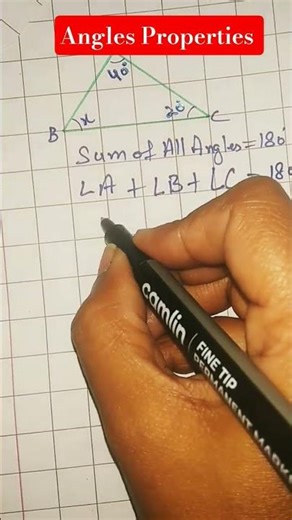 Angles Properties
40°
B x 20° C
Sum of All Angles = 180°
∠A + ∠B + ∠C = 180
camlin FINE TIP
PERMANENT MARKE